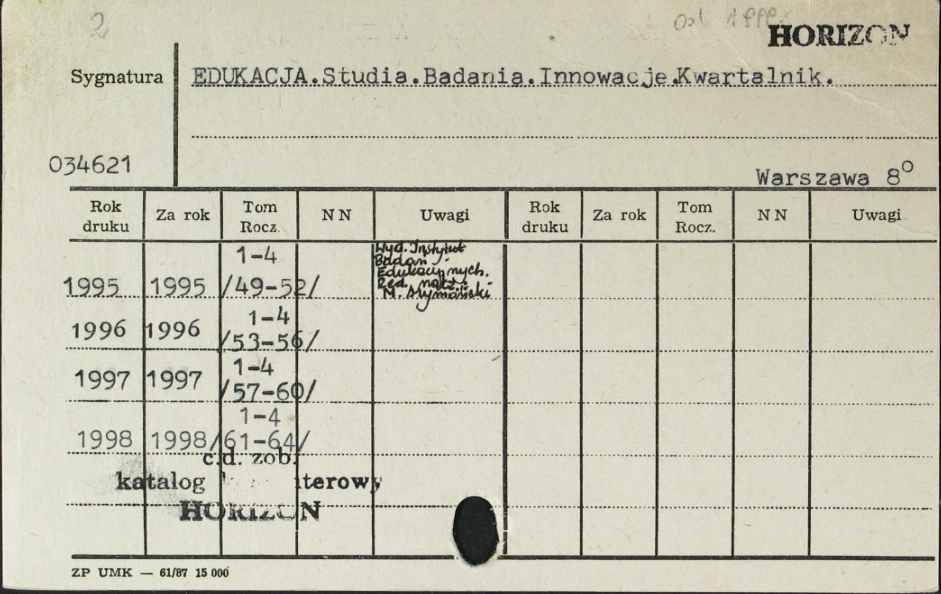 2
HORIZON
Sygnatura EDUKACJA.Studia.Badania.Innowacje.Kwartalnik.
034621
Warszawa 8°
Rok druku Za rok Tom Rocz. NN Uwagi Rok druku Za rok Tom Rocz. NN Uwagi
1995 1995 1-4 /49-52/ Wyd. Instytut
Badań
Edukacyjnych.
Red. nacz.:
M.
1996 1996 1-4 /53-56/
1997 1997 1-4 /57-60/
1998 1998 1-4 /61-64/
c.d. zob.
katalog terowy
HORIZON
ZP UMK — 61/87 15 000